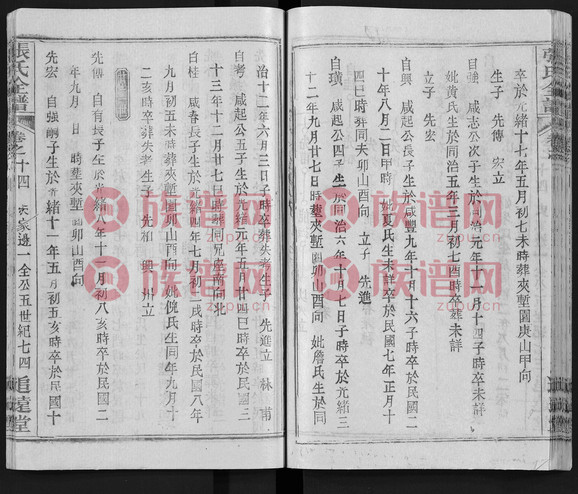 卒於光緒十七年五月初七未時葬夾塹園庚山甲向
生子 先傳 宏立
自強 咸志公次子生於同治元年十一月十四子時卒未詳
妣黃氏生於同治五年三月初七酉時卒葬未詳
立子 先宏
自興 咸起公長子生於咸豐九年十月十六子時卒於民國七年正月十
十年八月二日甲時 妣夏氏生未詳民國
四巳時葬同未卯山酉向 立子 先進
自璜 咸起公四子生於同治六年十月七日子時卒於光緒三
十二年九月廿七日時葬夾塹園卯山酉向 妣詹氏生於同
治十二年六月三日子時卒葬失考生子 先進立 林甫
自考 咸起公五子生於光緒元年五月廿四巳時卒於民國三
十三年十二月廿七巳時葬同兄座南向北
自柱 咸春長子生於光緒四年七月初一戌時卒於民國八年
九月初五未時葬夾塹園卯山酉向 妣倪氏生同年九月十
二亥時卒葬失考生子 先柏 興 卅立
先傳 自有長子生於光緒八年十一月初八亥時卒於民國二
年九月 日 時葬夾塹園卯山酉向
先宏 自強嗣子生於光緒十一年五月初五亥時卒於民國十
張氏全譜 卷之十四 夾家邊一全公五世紀七四 追遠堂
族谱网
zupu.cn
族谱网
zupu.cn